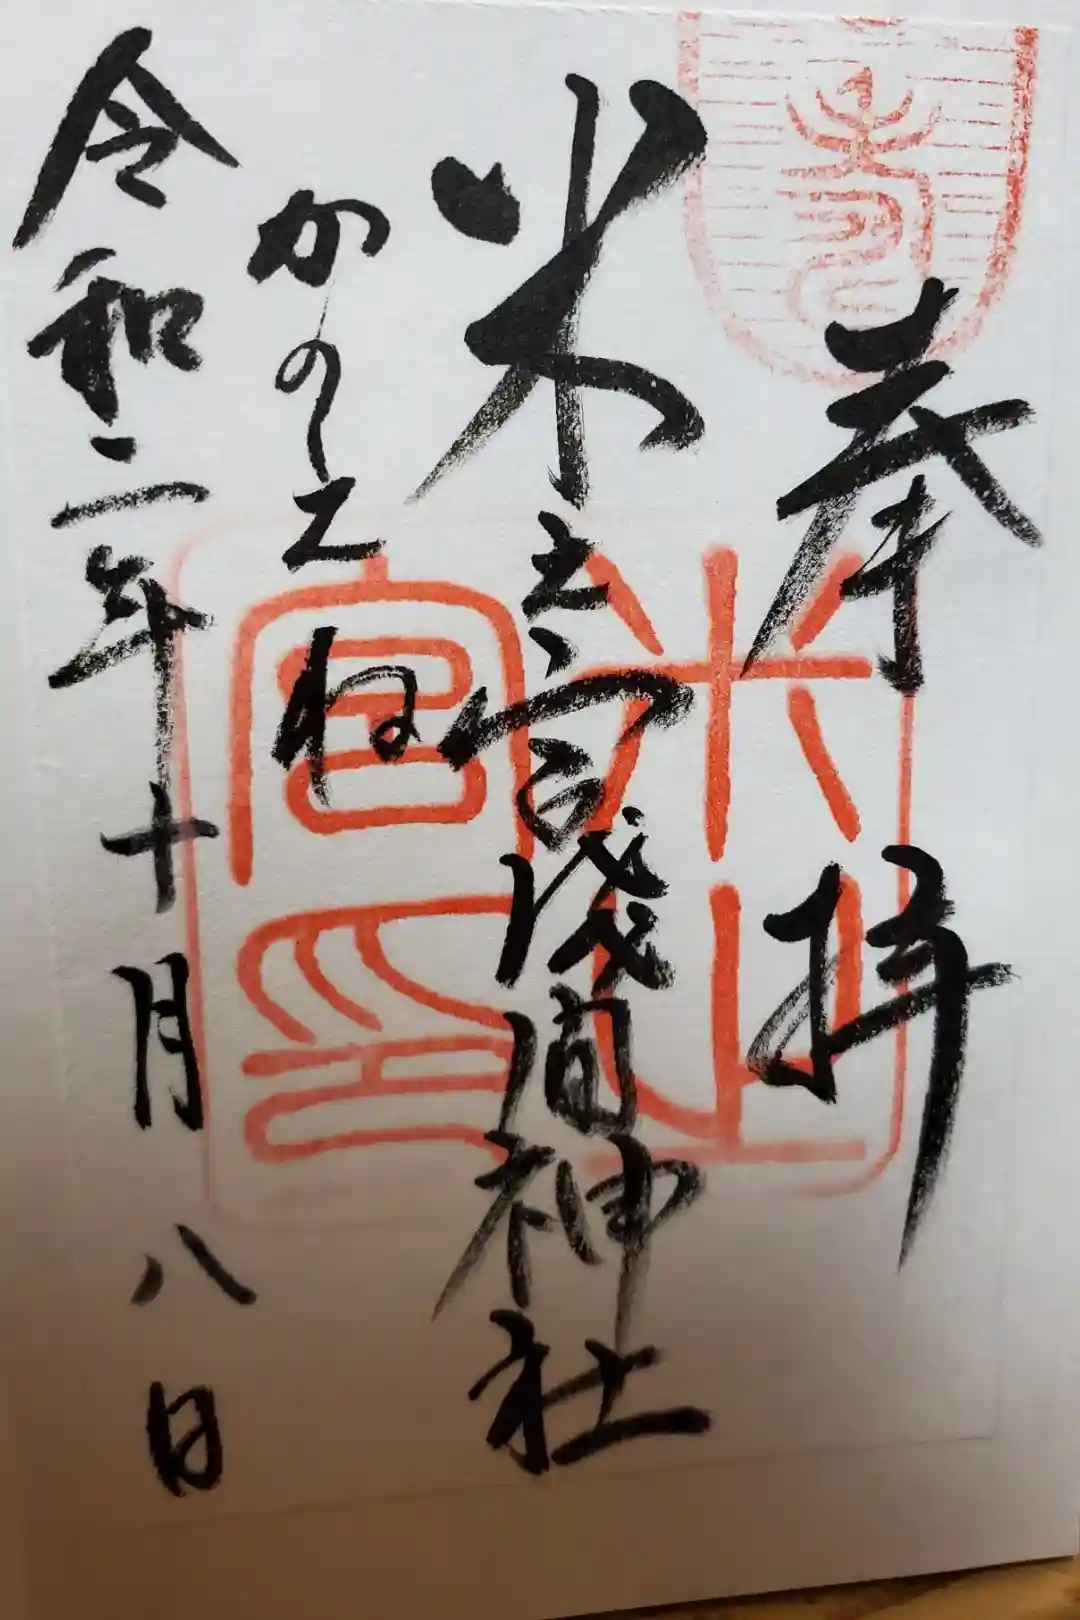 奉拝
米之宮淺間神社
かのえね
令和二年十月八日
米之
宮印